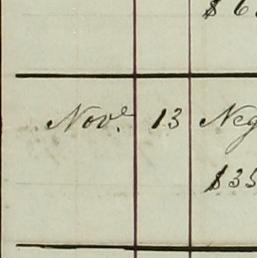 $6
Novr. 13 Neg
$35